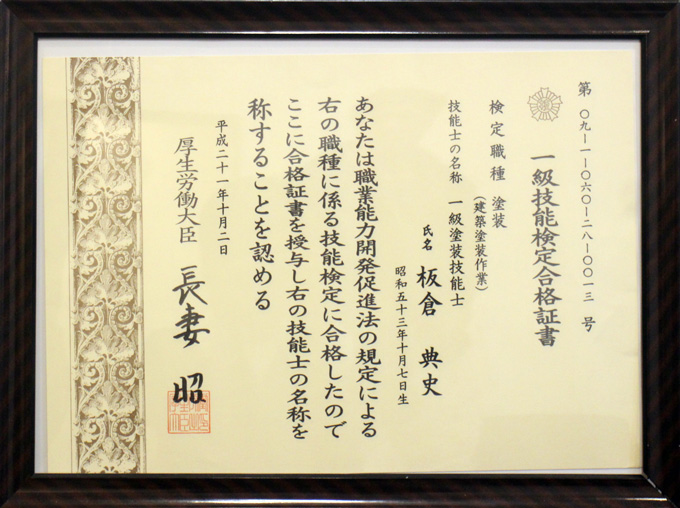 第 〇九-一-〇六〇-二八-〇〇一三 号
一級技能検定合格証書
検定職種 塗装
(建築塗装作業)
技能士の名称 一級塗装技能士
氏名 板倉 典史
昭和五十三年十月七日生
あなたは職業能力開発促進法の規定による
右の職種に係る技能検定に合格したので
ここに合格証書を授与し右の技能士の名称を
称することを認める
平成二十一年十月二日
厚生労働大臣 長妻 昭